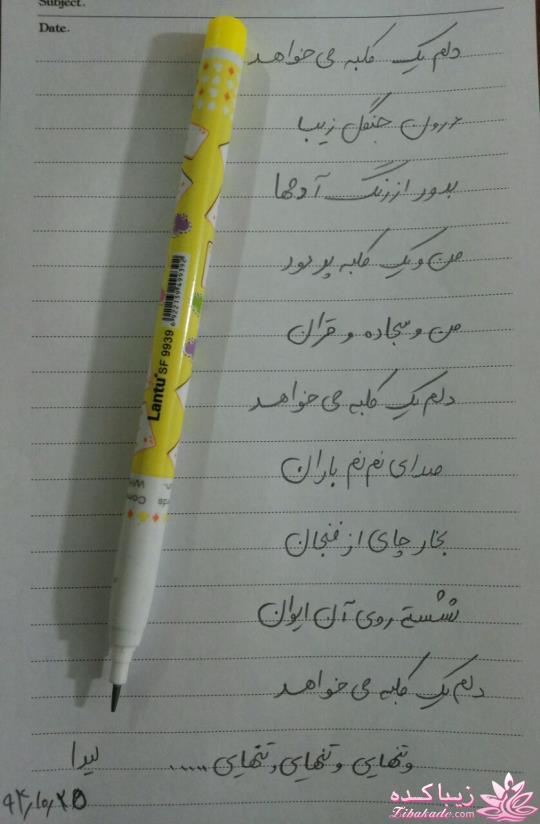 Subject.
Date.
دلم یک کلبه می خواهد
درون جنگل زیبا
بدور از رنگ آدمها
من و یک کلبه پر دود
من و سجاده و قرآن
دلم یک کلبه می خواهد
صدای نم نم باران
بخار چای از فنجان
نشسته روی آن ایوان
دلم یک کلبه می خواهد
و تنهایی و تنهایی و تنهایی ......
لیدا
94/10/25
Lantu SF 9939
6922159499393
زیباکده
Zibakade.com